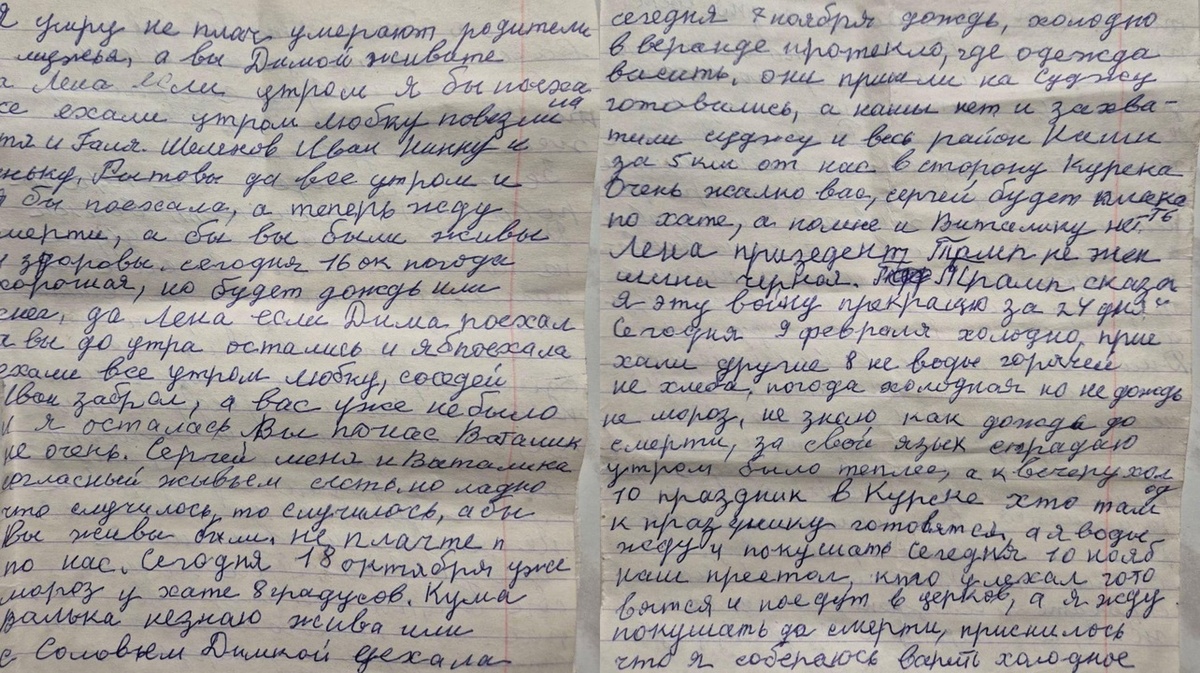 Я умру не плач умерают родители
мужья, а вы Димой живите
а Лена если утром я бы поеха
се ехали утром любку повезли на
тя и Галя. Шеленков Иван Нинку и
нькы, Ратовы да все утром и
я бы поехала, а теперь жду
мерти, а бы вы были живы
и здоровы. сегодня 16 ок погода
хорошая, но будет дождь или
снег, да Лена если Дима поехал
а вы до утра остались и я б поехала
ехали все утром любку, соседей
Иван забрал, а вас уже не было
и я осталась Вы по нас Ваталик
не очень. Сергей меня и Ваталика
согласный живьем сесть, но ладно
что случилось, то случилось, а бы
Вы живы были, не плачте п
по нас. Сегодня 18 октября уже
мороз у хате 8 градусов. Кума
Валька незнаю жива или
с Соловьем Димкой уехала
сегодня 7 ноября дождь, холодно
в веранде протекло, где одежда
васить, они пришли на Суджу
готовились, а нашы нет и захва-
тили суджу и весь район Наши
за 5 км от нас в сторону Курска
Очень жалко вас, сергей будет плака
ть
по хате, а по мне и Виталику нет
Лена призедент Трамп не жен
шина черная. Трамп сказа
я эту войну прекращю за 24 дня"
Сегодня 9 февраля холодно, прие
хали другие 8 не воды горячей
не хлеба, погода холодная но не дождь
не мороз, не знаю как дождь до
смерти, за свой язык страдаю
утром было теплее, а к вечеру хол
од
10 праздник в Курске хто там
к празднику готовятся, а я воды
жду и покушать Сегодня 10 нояб
наш престол, кто уехал гото
вятся и поедут в церков, а я жду
покушать до смерти, приснилось
что я собераюсь варить холодное